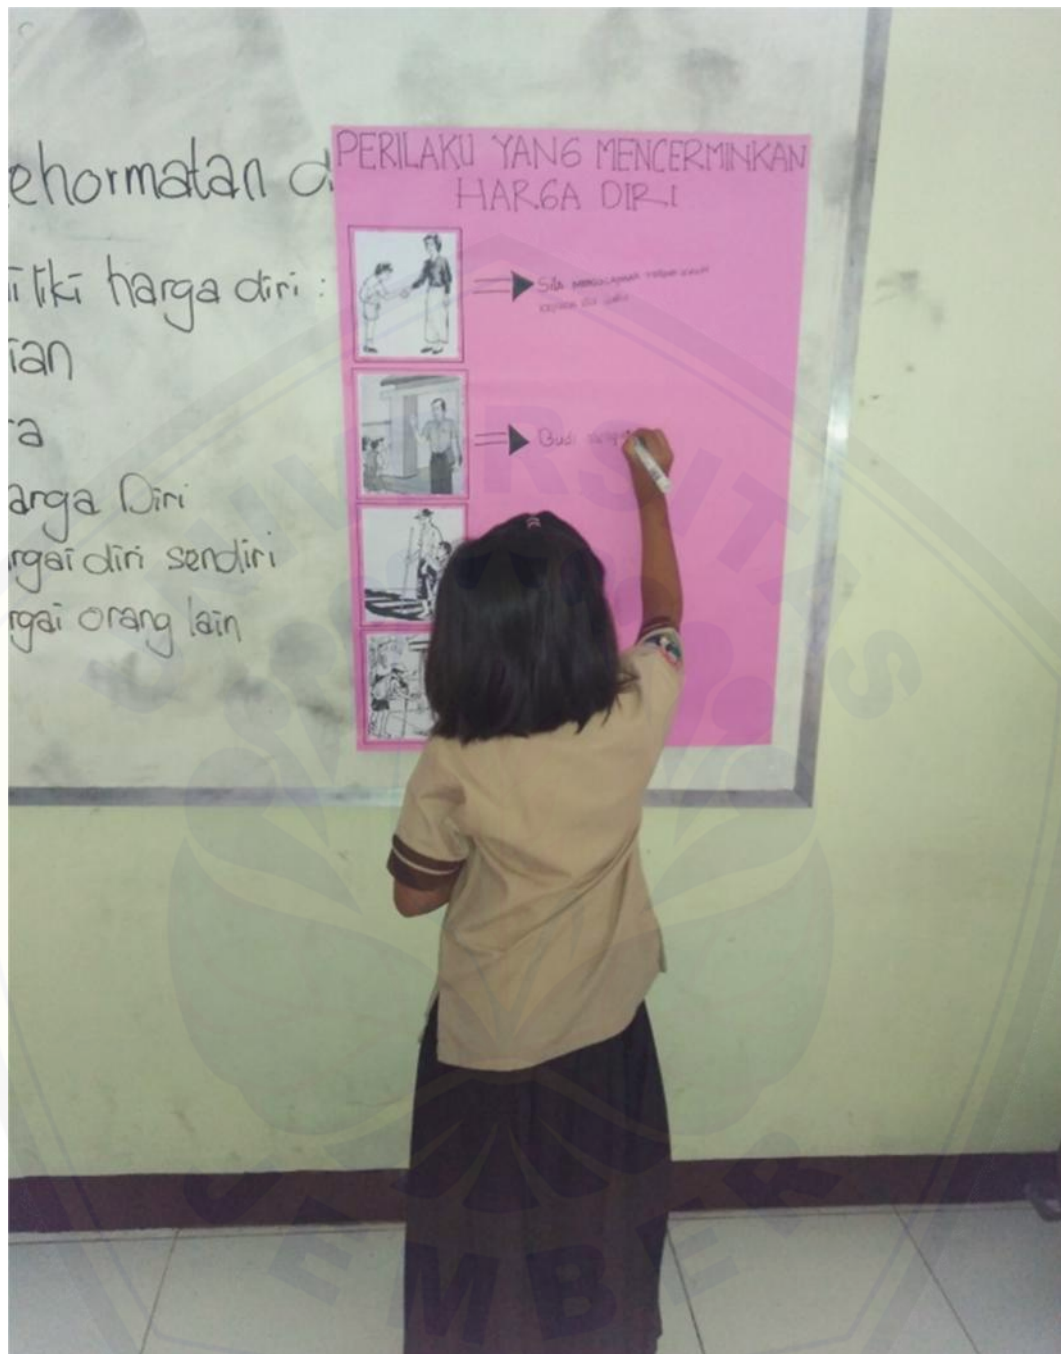 ehormatan d
iliki harga diri :
ian
ra
arga Diri
rgai diri sendiri
rgai orang lain
PERILAKU YANG MENCERMINKAN
HARGA DIRI
Siti mengucapkan terima kasih
kepada
Budi
UNIVERSITAS
JEMBER